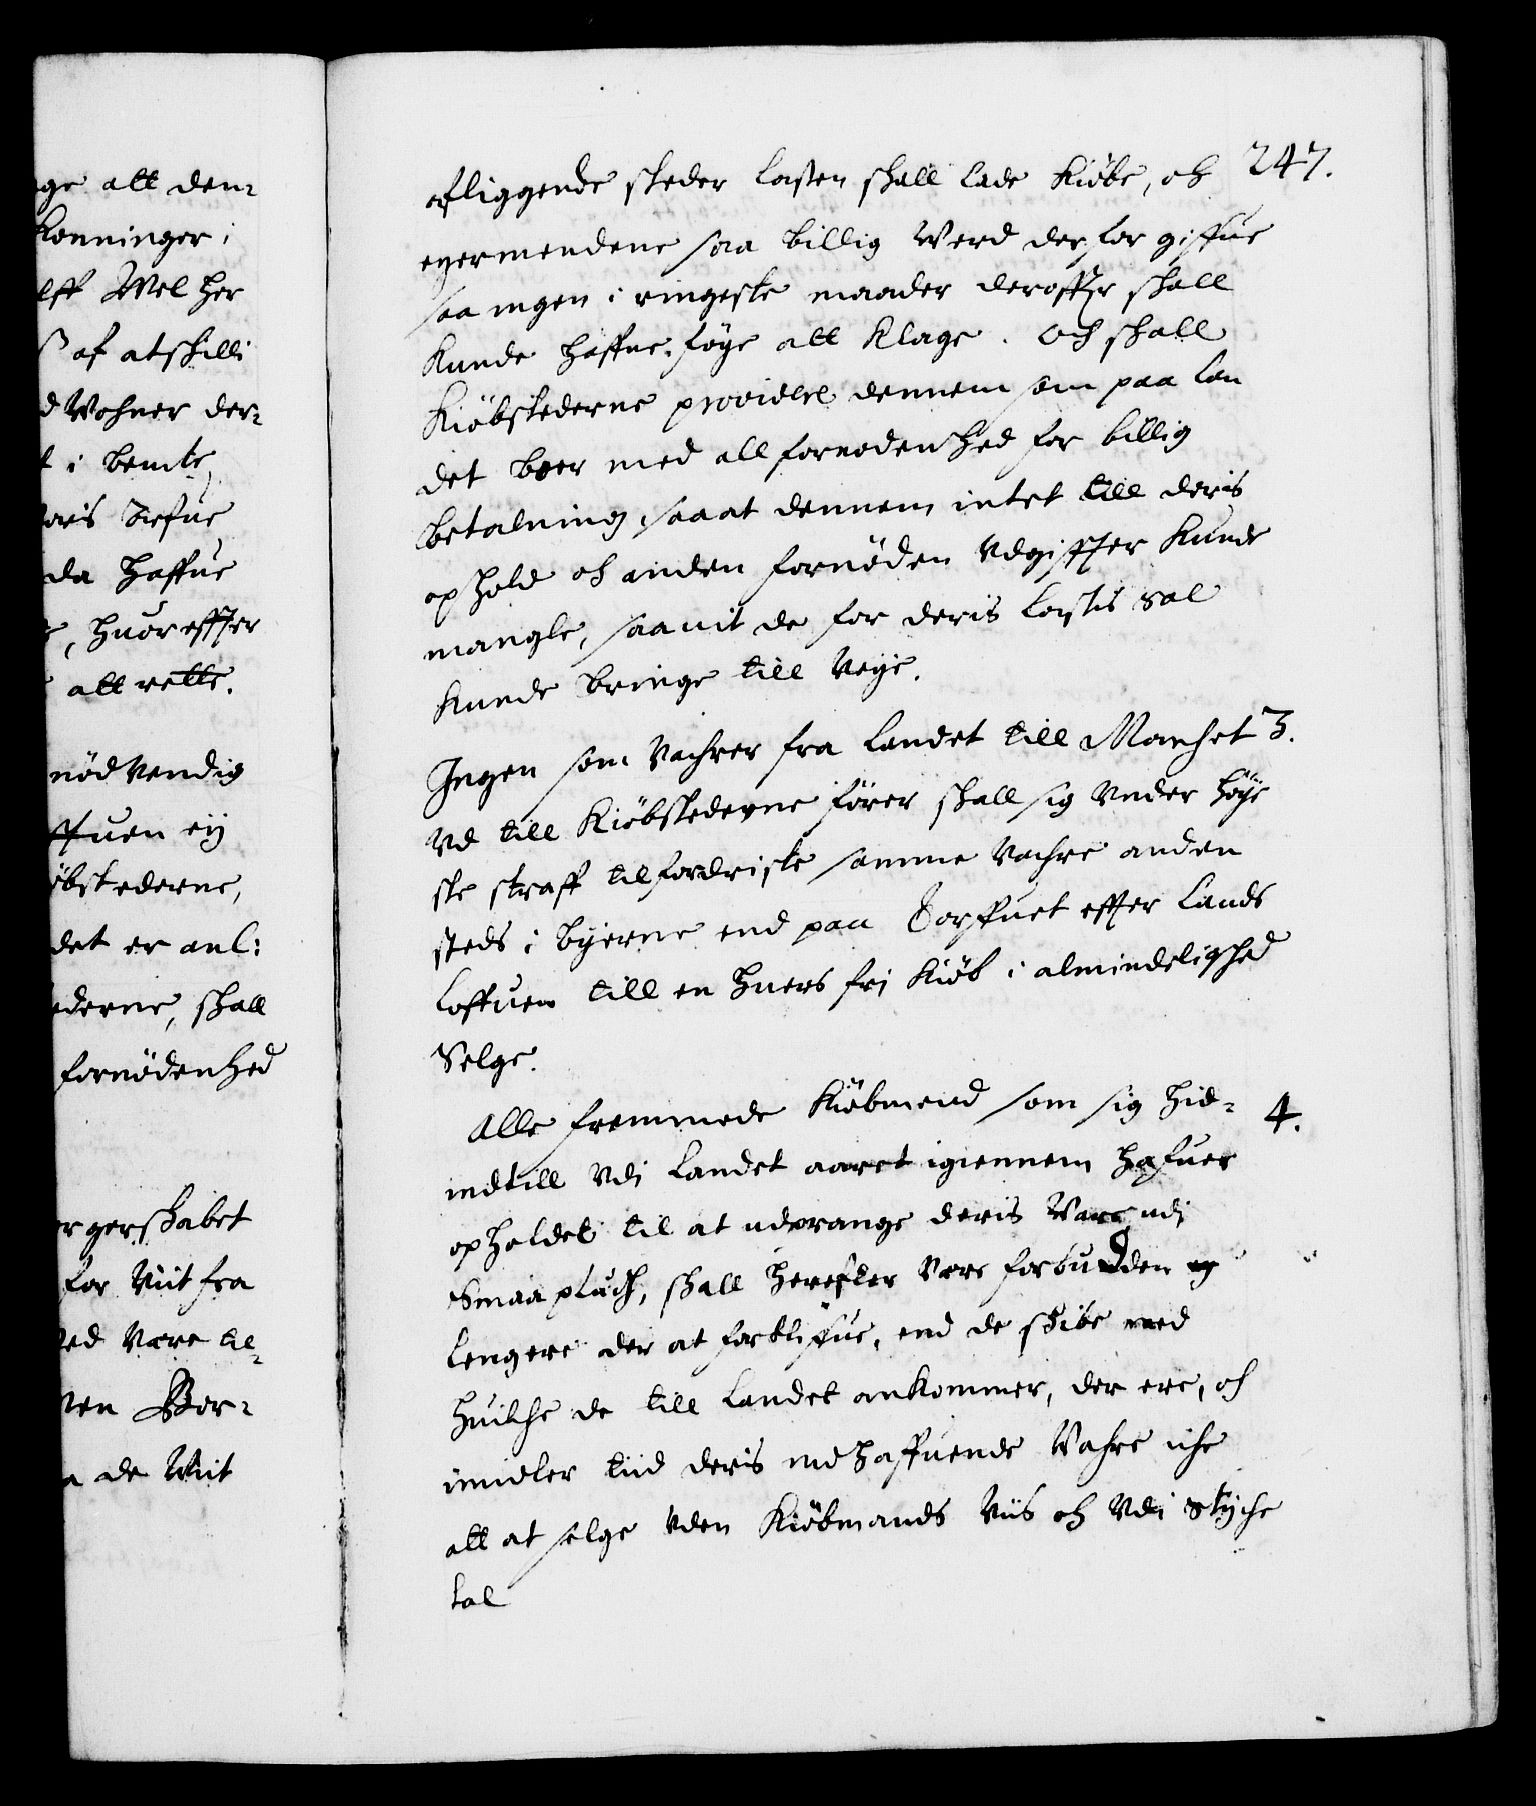 ge att den-
konninger i
lff Wel her
ß af atskilli
d Wohner der-
t i bemte,
oris brefue
da haffue
, huoreffter
att rette.
nødvendig
ffuen eij
øbstederne,
det er anl:
ederne, skall
fornødenhed
ergerskabet
for Viit fra
ed Være til-
nen Bor-
a de Wiit
247.
afliggende steder lasten skall lade kiøbe, och
eyermendene saa billig Werd der for giffue
saa ingen i ringeste maader deroffr skall
kunde haffue føye att klage. Och skall
kiøbstederne providere dennem som paa lan
det boer med all fornodenhed for billig
betalning, saa at dennem intet till deris
ophold och anden fornøden Vdgiffter kunde
mangle, saauit de for deris lastis sal
kunde bringe till Veye.
Ingen som Vahrer fra landet till Marchet 3.
Vd till kiøbstederne fører skall sig Vnder høye
ste straff tilfordriste samme Vahre anden
steds i byerne end paa Torffuet effter lands
loffuen till en huers fri kiøb i almindelighed
Selge.
Alle fremmede kiøbmend som sig hid- 4.
indtill Vdi landet aaret igiennem hafuer
opholdet til at udprange deris Vare udj
Smaa pluch, skall herefter Være forbudden ey
lengere der at forbliffue, end de skibe med
huilche de till landet ankommer, der ere, och
imidler tiid deris indhaffuende Vahre iche
att at selge Vden kiøbmands Viis och Vdi styche
tal